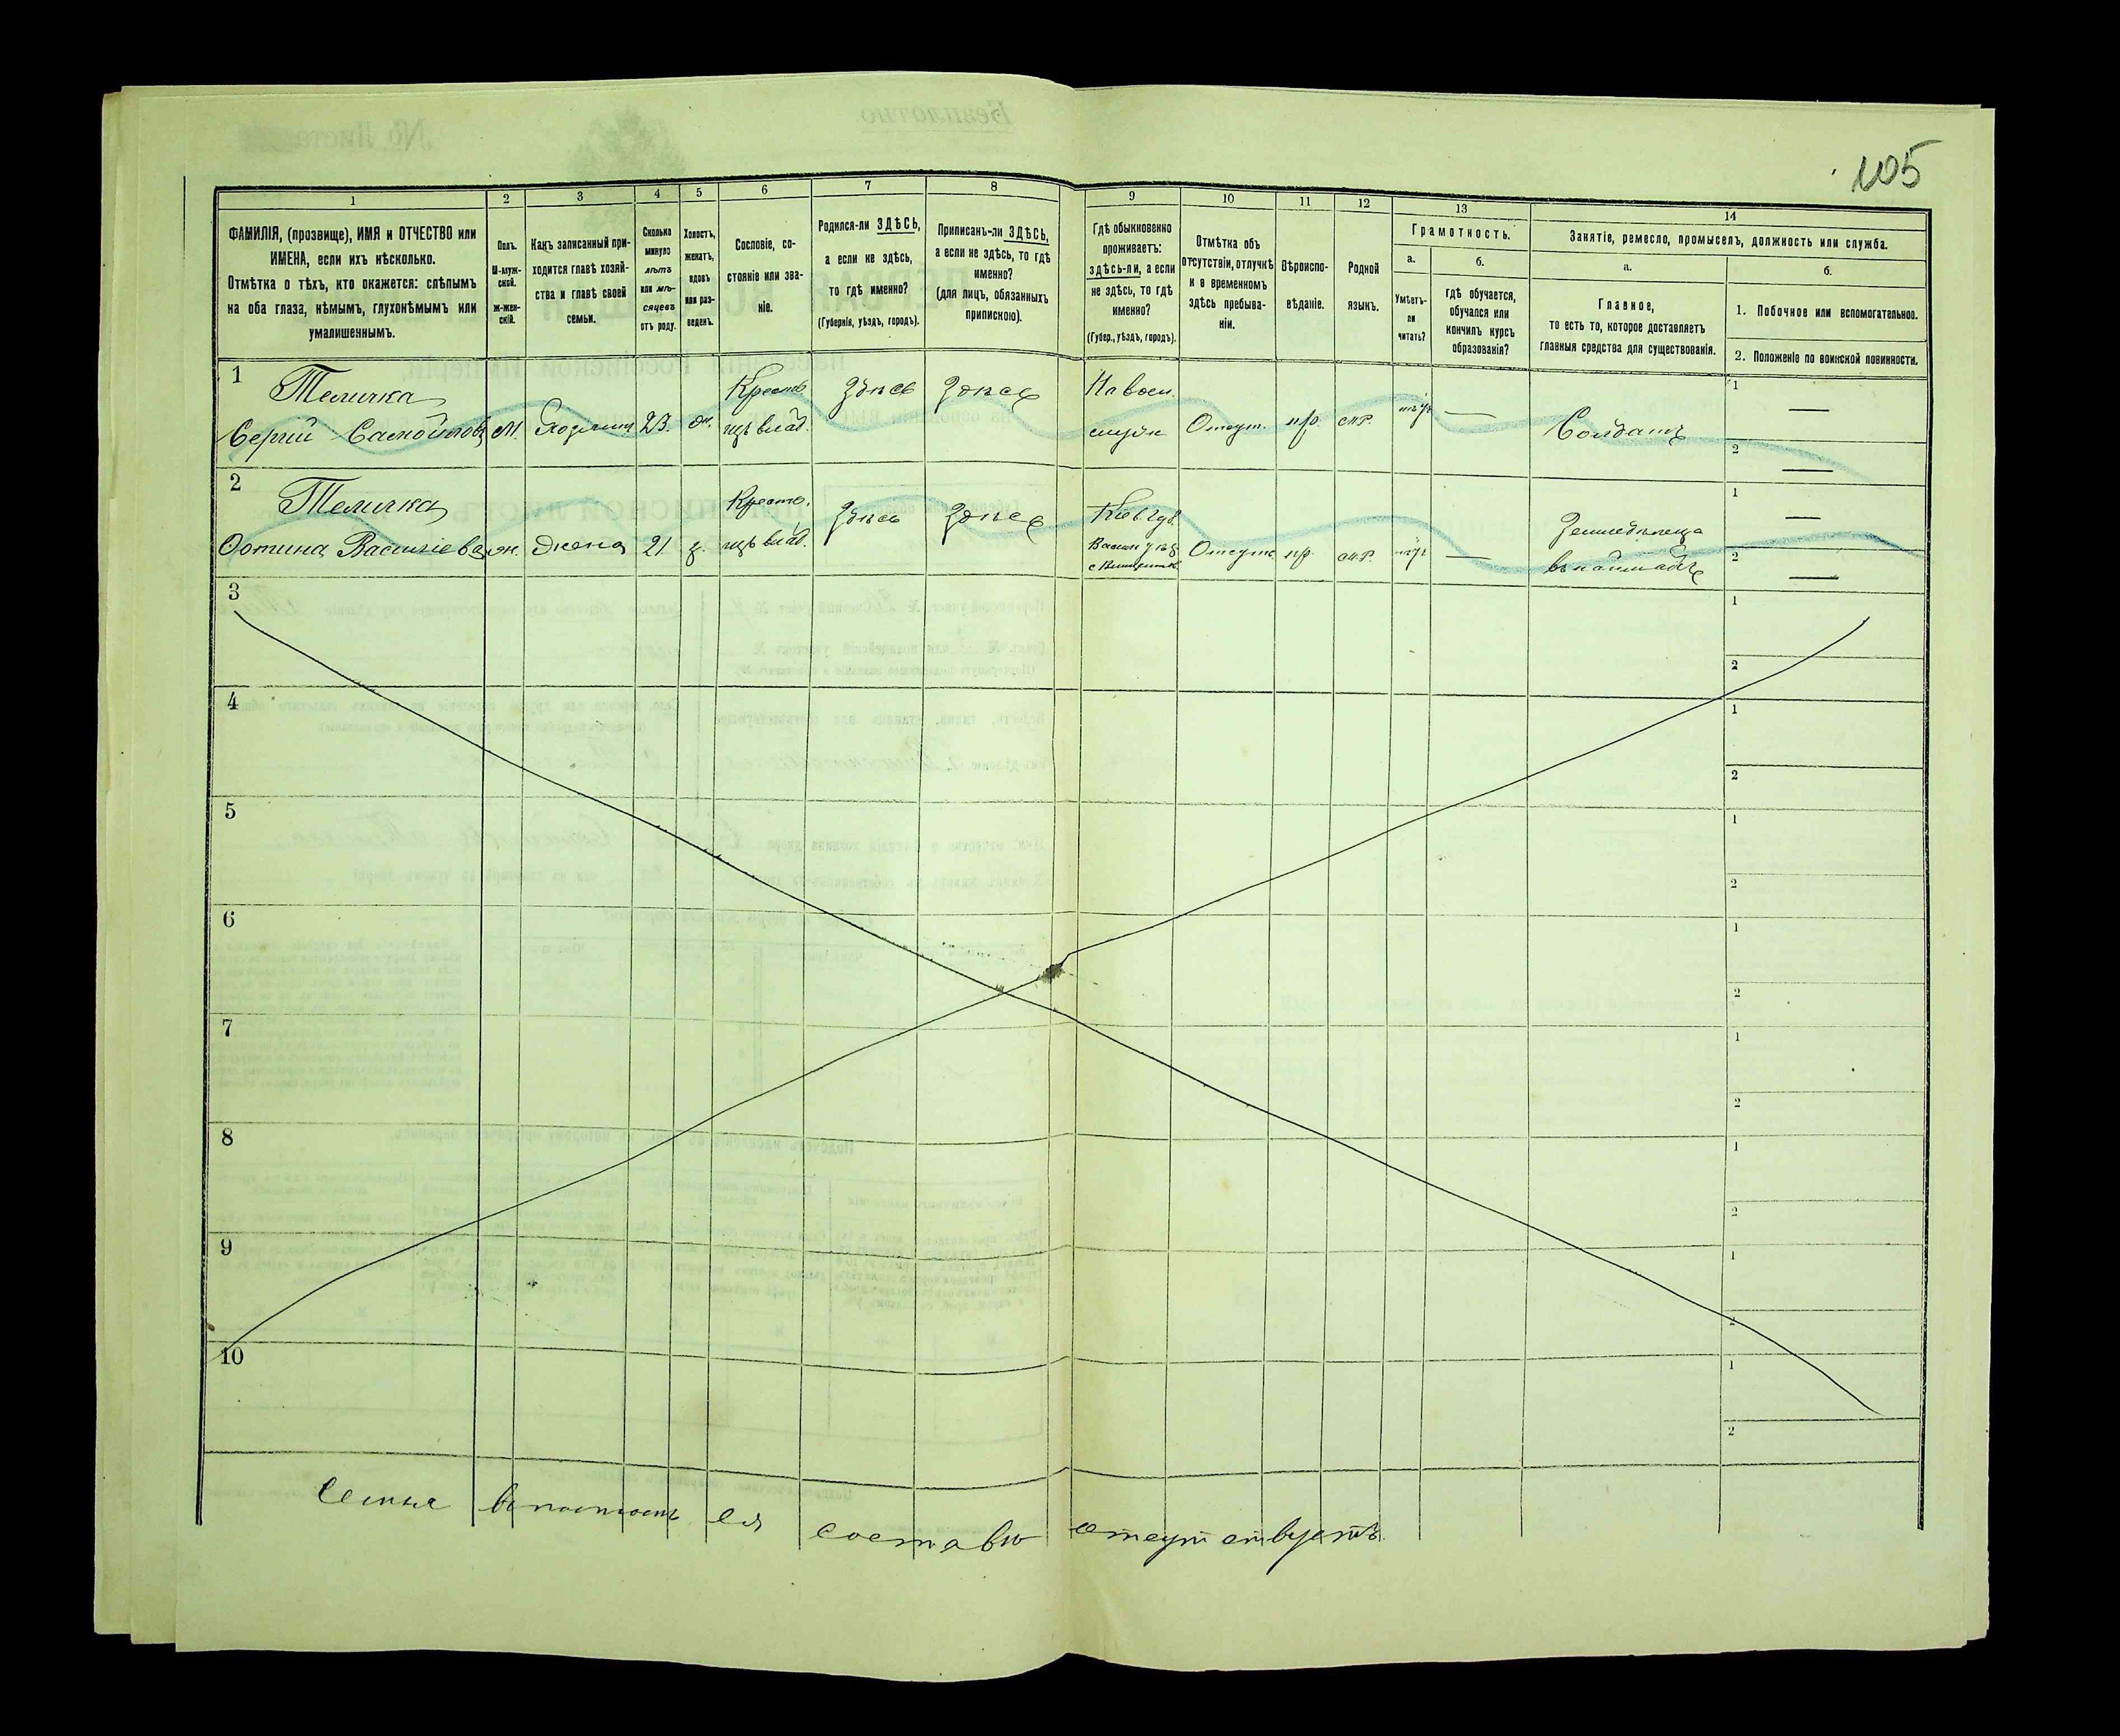 105
1
2
3
4
5
6
7
8
9
10
11
12
13
14
ФАМИЛІЯ, (прозвище), ИМЯ и ОТЧЕСТВО или
ИМЕНА, если ихъ нѣсколько.
Отмѣтка о тѣхъ, кто окажется: слѣпымъ
на оба глаза, нѣмымъ, глухонѣмымъ или
умалишеннымъ.
Полъ.
М-муж-
ской.
ж-жен-
скій.
Какъ записанный при-
ходится главѣ хозяй-
ства и главѣ своей
семьи.
Сколько
минуло
лѣтъ
или мѣ-
сяцевъ
отъ роду.
Холостъ,
женатъ,
вдовъ
или раз-
веденъ.
Сословіе, со-
стояніе или зва-
ніе.
Родился-ли ЗДѢСЬ,
а если не здѣсь,
то гдѣ именно?
(Губернія, уѣздъ, городъ).
Приписанъ-ли ЗДѢСЬ,
а если не здѣсь, то гдѣ
именно?
(для лицъ, обязанныхъ
припискою).
Гдѣ обыкновенно
проживаетъ:
здѣсь-ли, а если
не здѣсь, то гдѣ
именно?
(Губер., уѣздъ, городъ).
Отмѣтка объ
отсутствіи, отлучкѣ
и о временномъ
здѣсь пребыва-
ніи.
Вѣроиспо-
вѣданіе.
Родной
языкъ.
Грамотность.
а.
Умѣетъ-
ли
читать?
б.
Гдѣ обучается,
обучался или
кончилъ курсъ
образованія?
Занятіе, ремесло, промыселъ, должность или служба.
а.
Главное,
то есть то, которое доставляетъ
главныя средства для существованія.
б.
1. Побочное или вспомогательное.
2. Положеніе по воинской повинности.
1
Теличка
Сергій Самойловъ
М.
Хозяинъ
23.
ж.
Крест.
Здѣсь
Здѣсь
На воен.
службѣ
Отсут.
пр.
мр.
нѣтъ
—
Солдатъ
1
—
2
—
2
Теличка
Фотина Васильева
ж.
Жена
21
з.
Крест.
Здѣсь
Здѣсь
Кіев Губ.
Васил уѣз
Отсут.
пр.
мр.
нѣтъ
—
Земледѣлица
1
—
2
—
3
1
2
4
1
2
5
1
2
6
1
2
7
1
2
8
1
2
9
1
2
10
1
2
Семья въ полномъ ея составѣ отсутствуетъ.